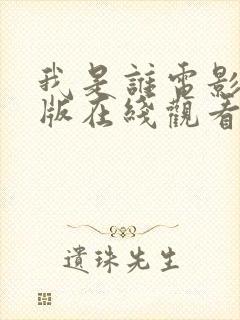 我是誰電影
版在綫觀看
遺珠先生